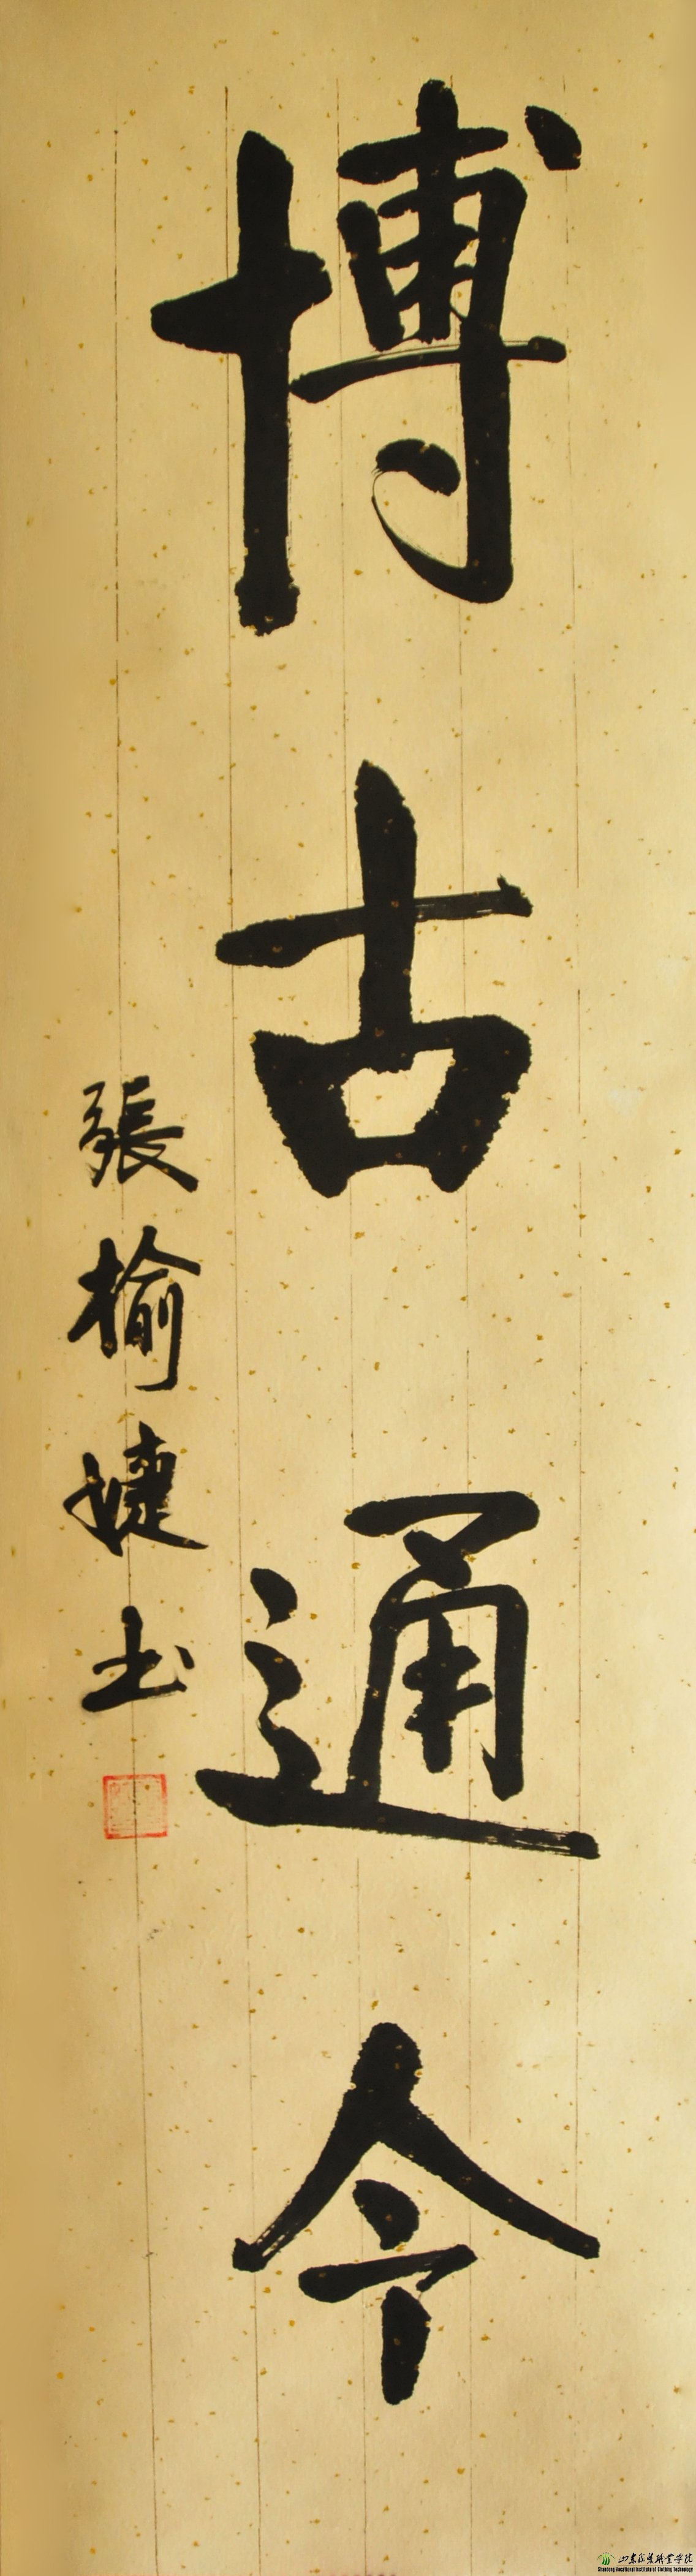 博古通今
張榆婕书
山东服装职业学院
Shandong Vocational Institute of Clothing Technology